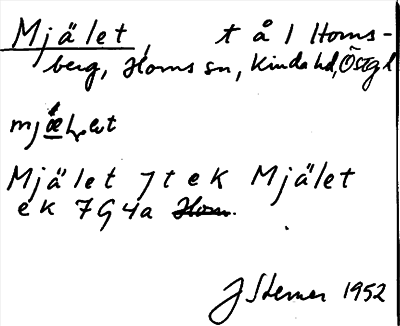 Mjälet, t å l Horns-
berg, Horns sn, Kinda hd, Östgl
Mjälet Jtek Mjälet
ek 7G4a Horn.
J Sterner 1952